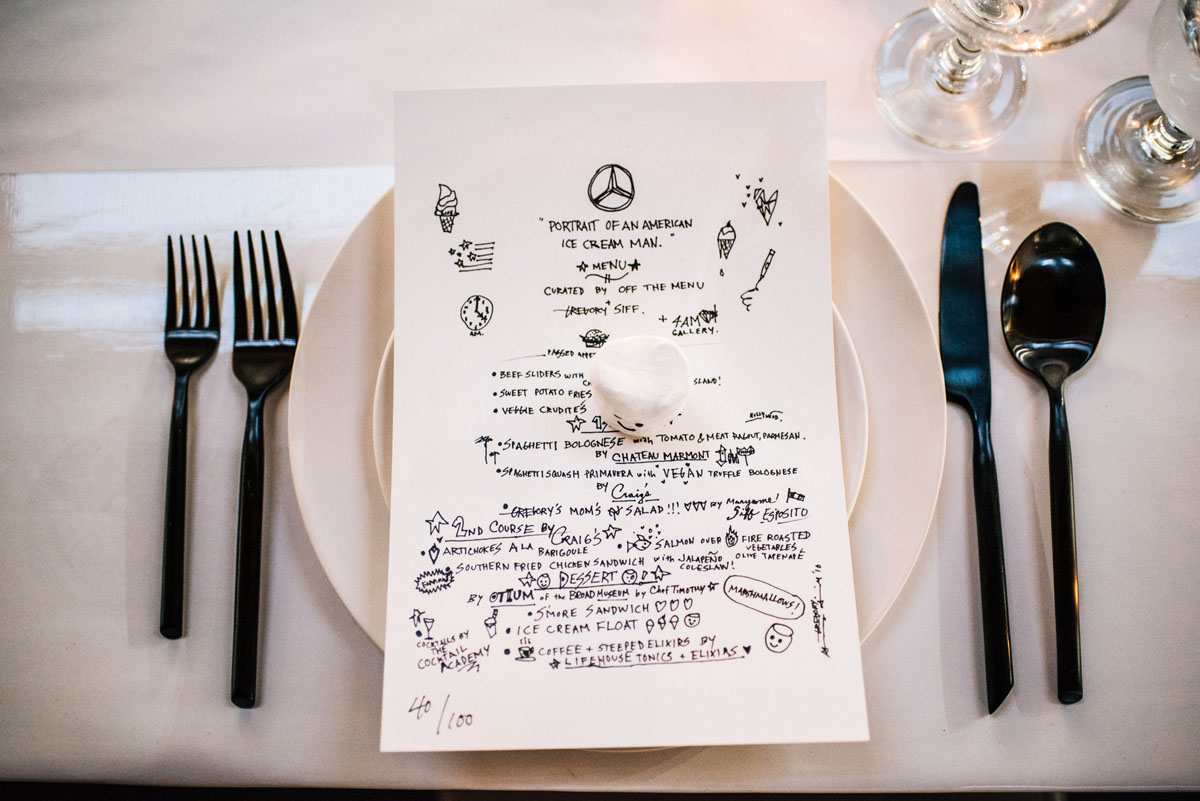 " PORTRAIT OF AN AMERICAN
ICE CREAM MAN. "
MENU
CURATED BY OFF THE MENU
GREGORY SIFF. + 4AM
GALLERY.
AM.
PASSED
• BEEF SLIDERS WITH ISLAND!
• SWEET POTATO FRIES
• VEGGIE CRUDITE'S
HOLLYWOOD.
• SPAGHETTI BOLOGNESE with TOMATO & MEAT RAGOUT, PARMESAN.
BY CHATEAU MARMONT
• SPAGHETTI SQUASH PRIMAVERA with VEGAN TRUFFLE BOLOGNESE
BY Craig's
• GREGORY'S MOM'S SALAD!!! BY Maryanne!
Siff ESPOSITO
2ND COURSE BY CRAIG'S
• ARTICHOKES A LA BARIGOULE
• SALMON OVER FIRE ROASTED
VEGETABLES
OLIVE TAPENADE
• SOUTHERN FRIED CHICKEN SANDWICH with JALAPEÑO
COLESLAW!
DESSERT!
BY OTIUM of the BROAD MUSEUM by Chef Timothy
MARSHMALLOWS!
• S'MORE SANDWICH
• ICE CREAM FLOAT
• COFFEE + STEEPED ELIXIRS BY
LIFEHOUSE TONICS + ELIXIRS
COCKTAILS BY
THE
COCKTAIL
ACADEMY
40/100